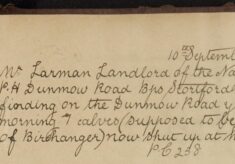 10th Septem
Mr Larman Landlord of the Na
P.H Dunmow Road Bps Stortford
finding on the Dunmow Road y
morning 7 calves (supposed to be
of Birchanger) now shut up at h
P C 238